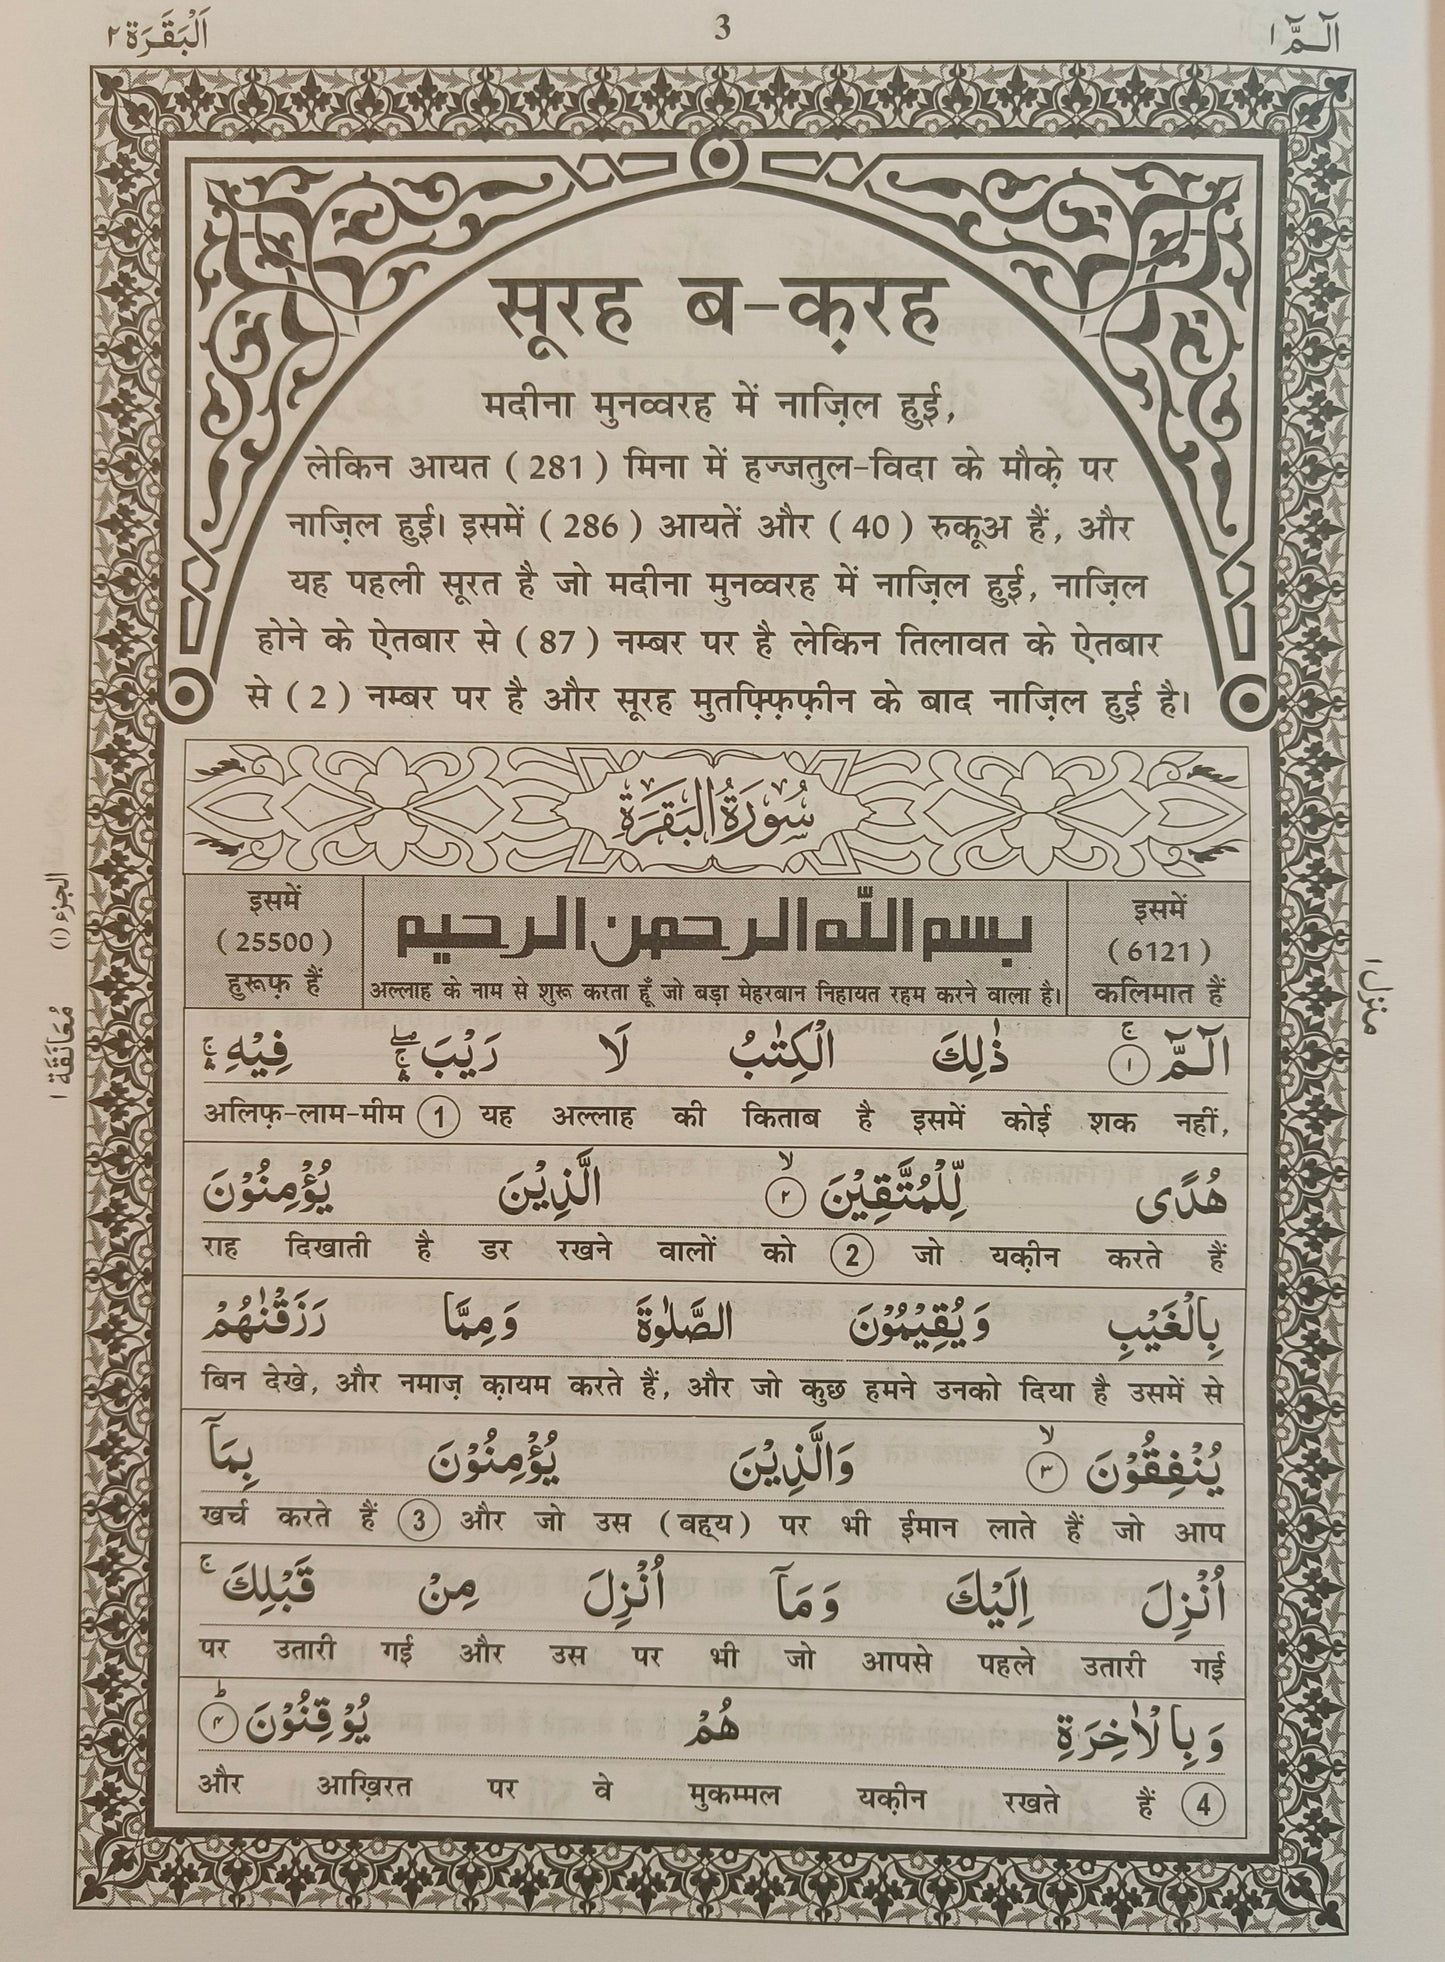 اَلْبَقَرَة ٢
3
الٓمّٓ ١
सूरह ब-क़रह
मदीना मुनव्वरह में नाज़िल हुई,
लेकिन आयत (281) मिना में हज्जतुल-विदा के मौक़े पर
नाज़िल हुई। इसमें (286) आयतें और (40) रुकूअ हैं, और
यह पहली सूरत है जो मदीना मुनव्वरह में नाज़िल हुई, नाज़िल
होने के ऐतबार से (87) नम्बर पर है लेकिन तिलावत के ऐतबार
से (2) नम्बर पर है और सूरह मुतफ़्फ़िफ़ीन के बाद नाज़िल हुई है।
سُوْرَةُ الْبَقَرَةِ
इसमें
(25500)
हुरूफ़ हैं
بسم الله الرحمن الرحيم
अल्लाह के नाम से शुरू करता हूँ जो बड़ा मेहरबान निहायत रहम करने वाला है।
इसमें
(6121)
कलिमात हैं
الجزء (١)
مُعَانَقَة ١
منزل ١
الٓمّٓ ۚ ﴿١﴾ ذٰلِكَ الْكِتٰبُ لَا رَيْبَ ۛۖۚ فِيْهِ ۛۚ
अलिफ़-लाम-मीम (1) यह अल्लाह की किताब है इसमें कोई शक नहीं,
هُدًى لِّلْمُتَّقِيْنَ ۙ ﴿٢﴾ الَّذِيْنَ يُؤْمِنُوْنَ
राह दिखाती है डर रखने वालों को (2) जो यक़ीन करते हैं
بِالْغَيْبِ وَيُقِيْمُوْنَ الصَّلٰوةَ وَمِمَّا رَزَقْنٰهُمْ
बिन देखे, और नमाज़ क़ायम करते हैं, और जो कुछ हमने उनको दिया है उसमें से
يُنْفِقُوْنَ ۙ ﴿٣﴾ وَالَّذِيْنَ يُؤْمِنُوْنَ بِمَآ
खर्च करते हैं (3) और जो उस (वह्य) पर भी ईमान लाते हैं जो आप
اُنْزِلَ اِلَيْكَ وَمَآ اُنْزِلَ مِنْ قَبْلِكَ ۚ
पर उतारी गई और उस पर भी जो आपसे पहले उतारी गई
وَبِالْاٰخِرَةِ هُمْ يُوْقِنُوْنَ ؕ ﴿٤﴾
और आख़िरत पर वे मुकम्मल यक़ीन रखते हैं (4)